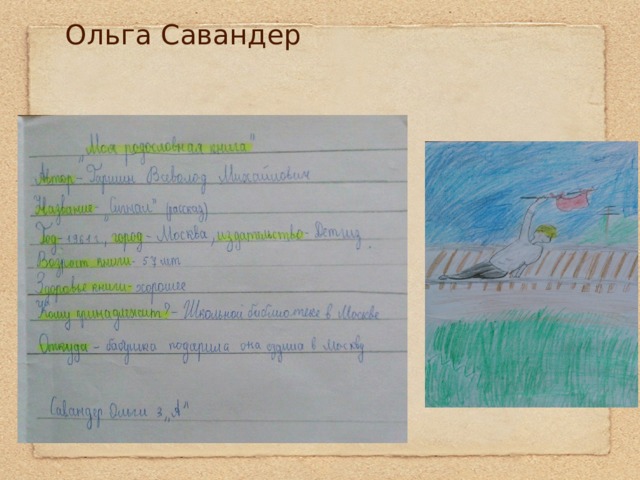 Ольга Савандер
„Моя родословная книга"
Автор - Гаршин Всеволод Михайлович
Название - „Сигнал" (рассказ)
Год - 1961 г, город - Москва, издательство - Детгиз.
Возраст книги - 57 лет
Здоровье книги - хорошее
Кому принадлежит? - Школьной библиотеке в Москве
Откуда - бабушка подарила она ездила в Москву
Савандер Ольги 3 „А"